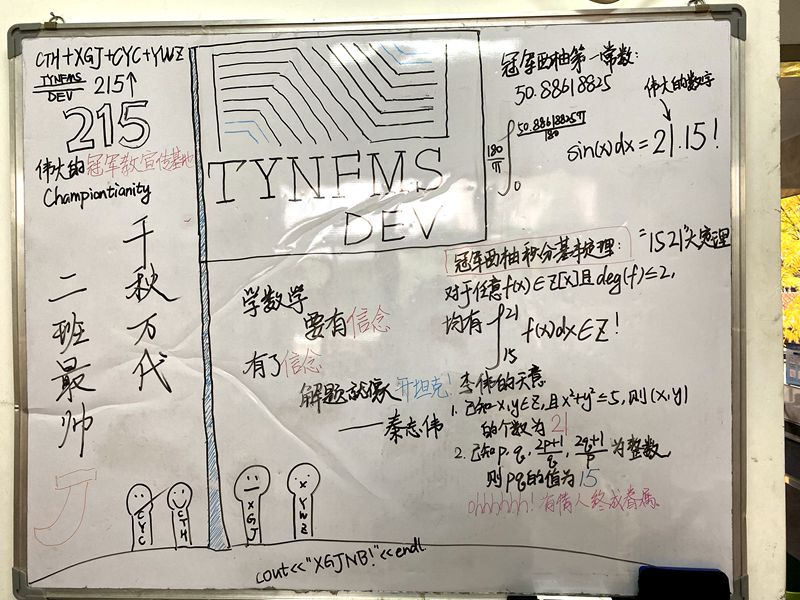 CTH+XGJ+CYC+YWZ
TYNFMS
DEV
215↑
215
伟大的冠军教宣传基地
Championtianity
千秋万代
二班最帅
TYNFMS
DEV
学数学
要有信念
有了信念
解题就像开坦克!
——秦志伟
冠军西柚第一常数:
50.88618825
伟大的数字
180/π ∫₀^(50.88618825π/180) sin(x)dx=21.15!
冠军西柚积分基本定理:
="1521"大定理
对于任意f(x)∈Z[x]且deg(f)≤2,
均有 ∫₁₅²¹ f(x)dx∈Z!
李伟的天意
1. 已知x,y∈Z,且x²+y²≤5,则(x,y)
的个数为21
2. 已知p,q,(2p+1)/q,(2q+1)/p为整数,
则pq的值为15
ohhhhhh!有情人终成眷属.
CYC
CTH
XGJ
YWZ
cout<<"XGJNB!"<<endl